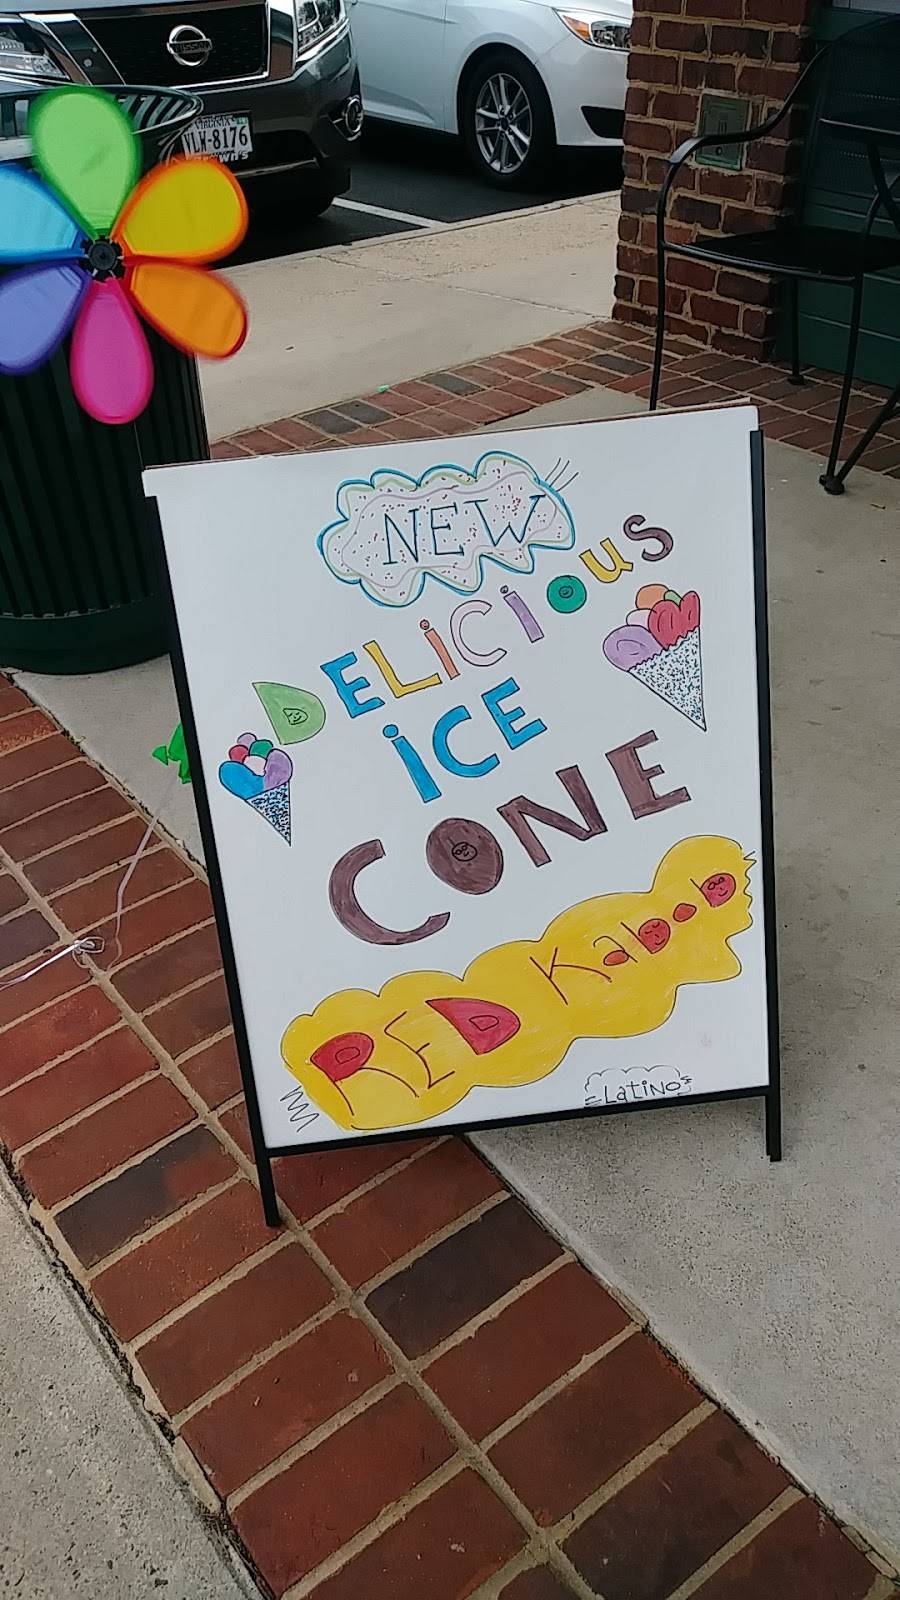 NISSAN
VIRGINIA
VLW-8176
NEW
DELiCiOuS
iCE
CONE
RED Kabob
LatiNO